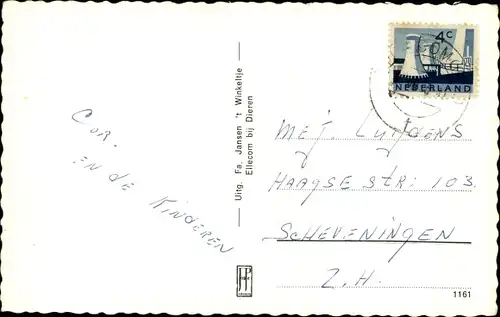 Cor.
en de Kinderen
Uitg. Fa. Jansen 't Winkeltje
Ellecom bij Dieren
4c
NEDERLAND
Mej. Luytgens
Haagse Str: 103.
Scheveningen
Z.H.
1161